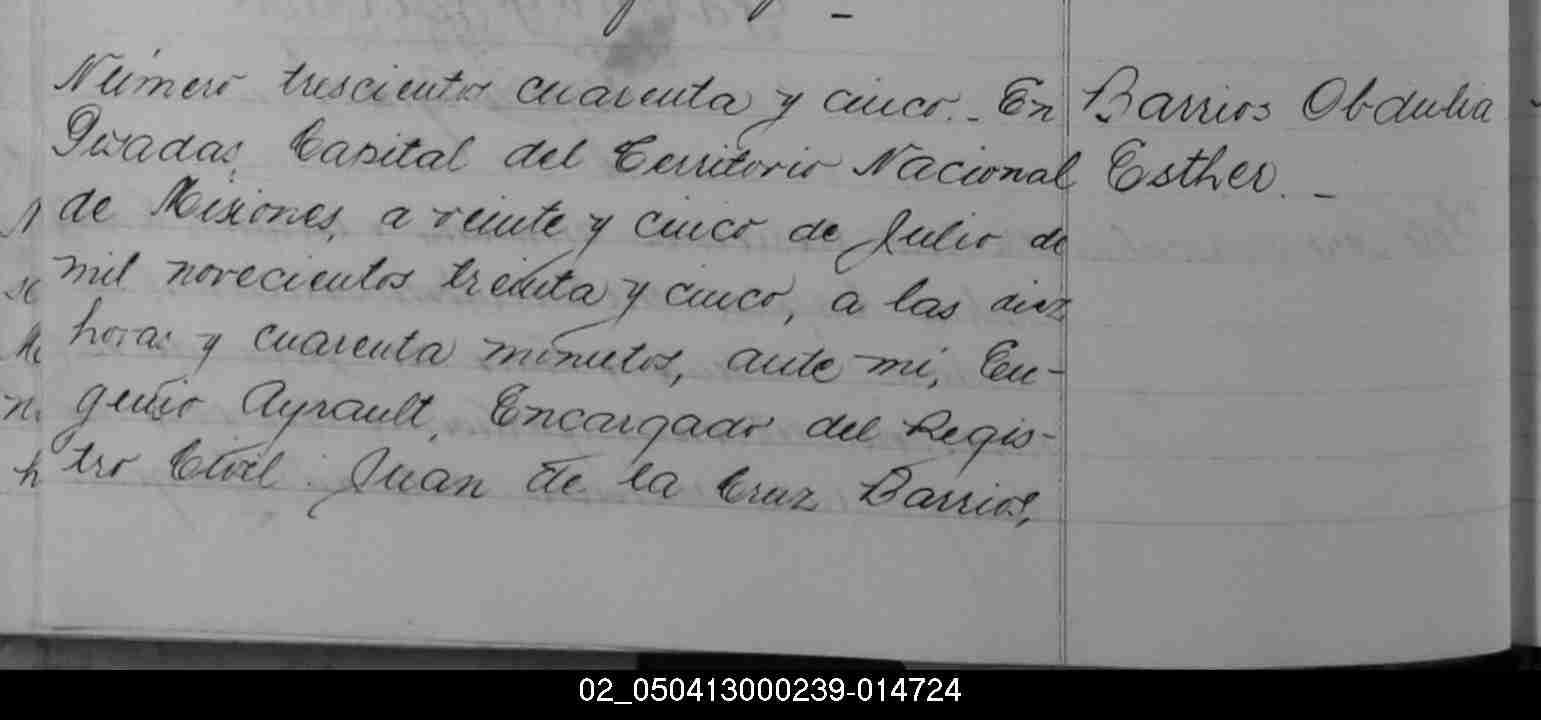 Número trescientos cuarenta y cinco.- En
Posadas, Capital del Territorio Nacional
de Misiones, a veinte y cinco de Julio de
mil novecientos treinta y cinco, a las diez
horas y cuarenta minutos, ante mi, Eu-
genio Ayrault, Encargado del Regis-
tro Civil: Juan de la Cruz Barrios,
Barrios Obdulia
Esther.-
02_050413000239-014724